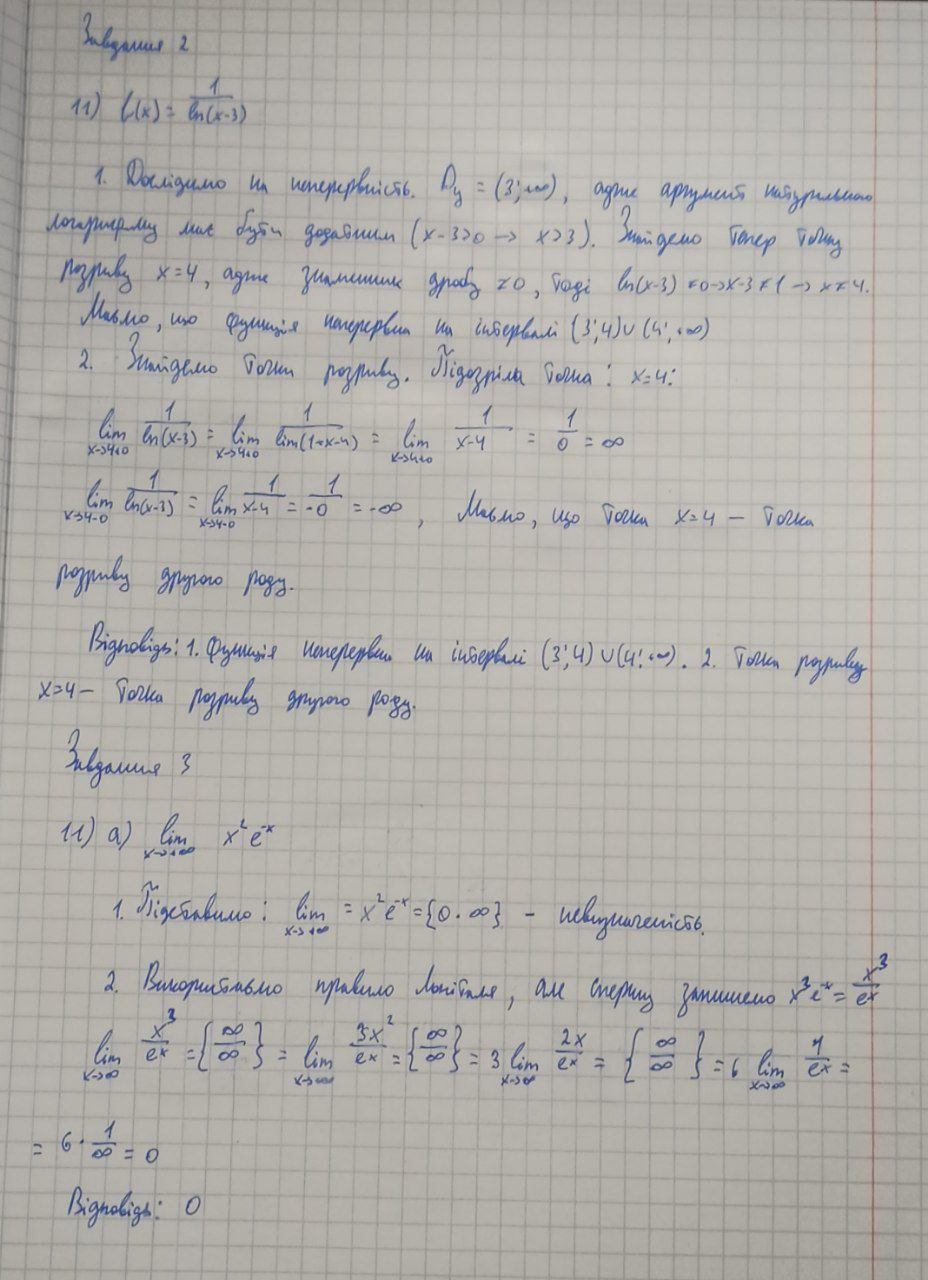 Завдання 2
11) f(x) = 1/ln(x-3)
1. Дослідимо на неперервність. Dy = (3; +∞), адже аргумент натурального
логарифму має бути додатним (x-3>0 → x>3). Знайдемо тепер точку
розриву x=4, адже знаменник дробу ≠0, тоді ln(x-3) ≠0→x-3≠1 → x≠4.
Маємо, що функція неперервна на інтервалі (3;4)∪(4;+∞)
2. Знайдемо точки розриву. Підозріла точка: x=4:
lim x→4+0 1/ln(x-3) = lim x→4+0 1/lim(1+x-4) = lim x→4+0 1/x-4 = 1/0 = ∞
lim x→4-0 1/ln(x-3) = lim x→4-0 1/x-4 = 1/-0 = -∞, Маємо, що точка x=4 – точка
розриву другого роду.
Відповідь: 1. Функція неперервна на інтервалі (3;4)∪(4;+∞). 2. Точка розриву
x=4 – точка розриву другого роду.
Завдання 3
11) а) lim x→+∞ x² e⁻ˣ
1. Підставимо: lim x→+∞ = x² e⁻ˣ = {0·∞} – невизначеність.
2. Використаємо правило Лопіталя, але спершу запишемо x³ e⁻ˣ = x³/eˣ
lim x→∞ x³/eˣ = {∞/∞} = lim x→∞ 3x²/eˣ = {∞/∞} = 3 lim x→∞ 2x/eˣ = {∞/∞} = 6 lim x→∞ 1/eˣ =
= 6 · 1/∞ = 0
Відповідь: 0